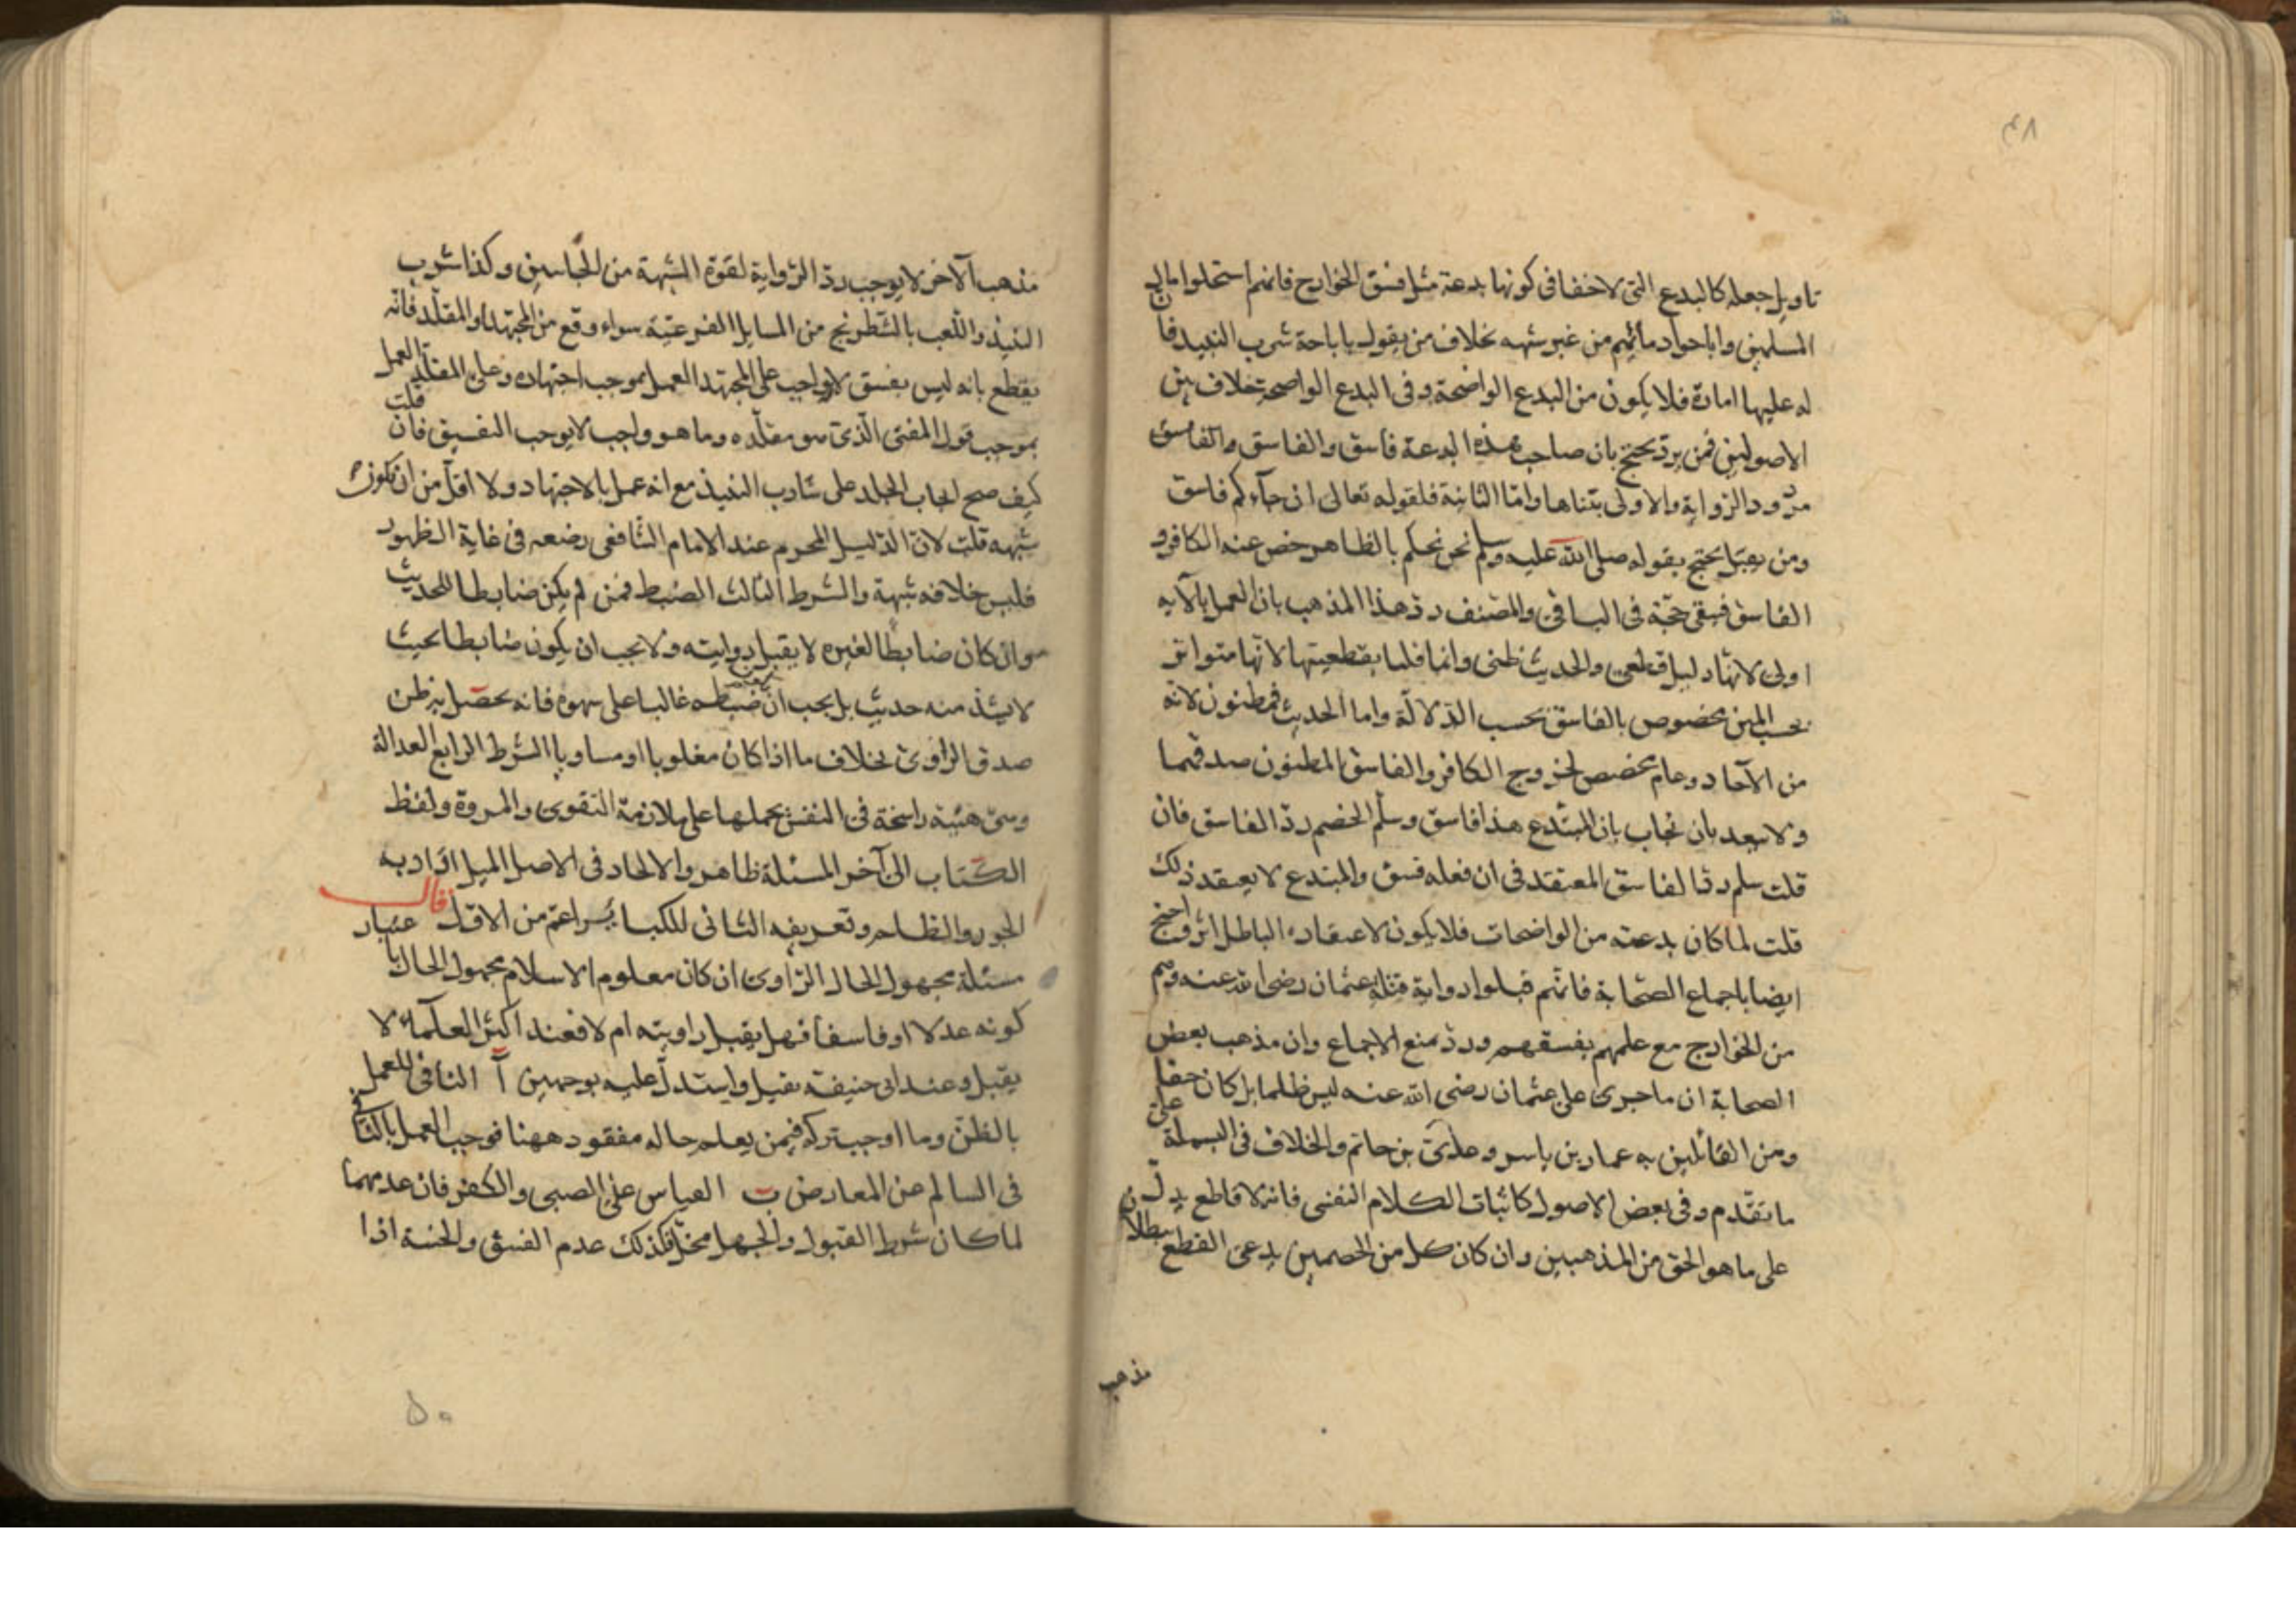 ٤٨
تاويل جعله كالبدع التى لا خفا فى كونها بدعة مثل فسق الخوارج فانهم استحلوا مال
المسلمين واباحوا دمائهم من غير شبهه بخلاف من يقول باباحة شرب النبيذ فا
له عليها امارة فلا يكون من البدع الواضحة وفى البدع الواضحة خلاف بين
الاصوليين فمن يرد يحتج بان صاحب هذه البدعة فاسق والفاسق والفاسق
مردود الرواية والاولى بتناها واما الثانية فلقوله تعالى ان جآءكم فاسق
ومن يقبل يحتج بقوله صلى الله عليه وسلم نحن نحكم بالظاهر خص عنه الكافر و
الفاسق فبقى حجة فى الباقى والمصنف رد هذا المذهب بان العمل بالآيه
اولى لانها دليل قطعى والحديث ظنى وانما قلنا بقطعيتها لانها متواتر
بحسب المتن مخصوص بالفاسق بحسب الدلالة واما الحديث فمظنون لانه
من الآحاد وعام مخصص لخروج الكافر والفاسق المظنون صدقهما
ولا يبعد بان يجاب بان المبتدع هذا فاسق وسلم الخصم رد الفاسق فان
قلت سلم رد الفاسق المعتقد فى ان فعله فسق والمبتدع لا يعتقد ذلك
قلت لما كان بدعته من الواضحات فلا يكون لاعتقاده الباطل اثر احتج
ايضا باجماع الصحابة فانهم قبلوا رواية قتلة عثمان رضى الله عنه وهم
من الخوارج مع علمهم بفسقهم ورد بمنع الاجماع وان مذهب بعض
الصحابة ان ما جرى على عثمان رضى الله عنه ليس ظلما بل كان حقا
ومن القائلين به عمار بن ياسر وعدى بن حاتم والخلاف فى البسملة على
ما تقدم وفى بعض الاصول كاثبات الكلام النفسى فانه لا قاطع يدل
على ما هو الحق من المذهبين وان كان كل من الخصمين يدعى القطع ببطلان
مذهب
مذهب الآخر لا يوجب رد الرواية لقوة الشبهة من الجانبين وكذا شرب
النبيذ واللعب بالشطرنج من المسايل الفرعية سواء وقع من المجتهد او المقلد فانه
يقطع بانه ليس بفسق لان واجب على المجتهد العمل بموجب اجتهاده وعلى المقلد العمل
بموجب قول المفتى الذى هو مقلده وما هو واجب لا يوجب التفسيق فان قلت
كيف صح ايجاب الجلد على شارب النبيذ مع انه عمل بالاجتهاد ولا اقل من ان يكون
شبهه قلت لان الدليل المحرم عند الامام الشافعى رضعه فى غاية الظهور
فليس خلافه شبهة والشرط الثالث الضبط فمن لم يكن ضابطا للحديث
وان كان ضابطا لغيره لا يقبل روايته ولا يجب ان يكون ضابطا بحيث
لا يشذ منه حديث بل يجب ان ضبطه غالبا على سهوه فانه يحصل به ظن
صدق الراوى بخلاف ما اذا كان مغلوبا او مساويا الشرط الرابع العدالة
وهى هيئة راسخة فى النفس يحملها على ملازمة التقوى والمروة ولفظ
الكتاب الى آخر المسئلة ظاهر والالحاد فى الاصل الميل اراد به
الجور والظلم وتعريفه الثانى للكبائر اعم من الاول قال
مسئلة مجهول الحال الراوى ان كان معلوم الاسلام مجهول الحال باعتبار
كونه عدلا او فاسقا فهل يقبل راويته ام لا فعند اكثر العلماء لا
يقبل وعند ابى حنيفة يقبل واستدل عليه بوجهين آ النافى للعمل
بالظن وما اوجب تركه فيمن يعلم حاله مفقود ههنا فوجب العمل بالنافى
فى السالم عن المعارض ب القياس على الصبى والكفر فان عدمهما
لما كان شرط القبول والجهل مخل فكذلك عدم الفسق والخسة اذا
٥٠